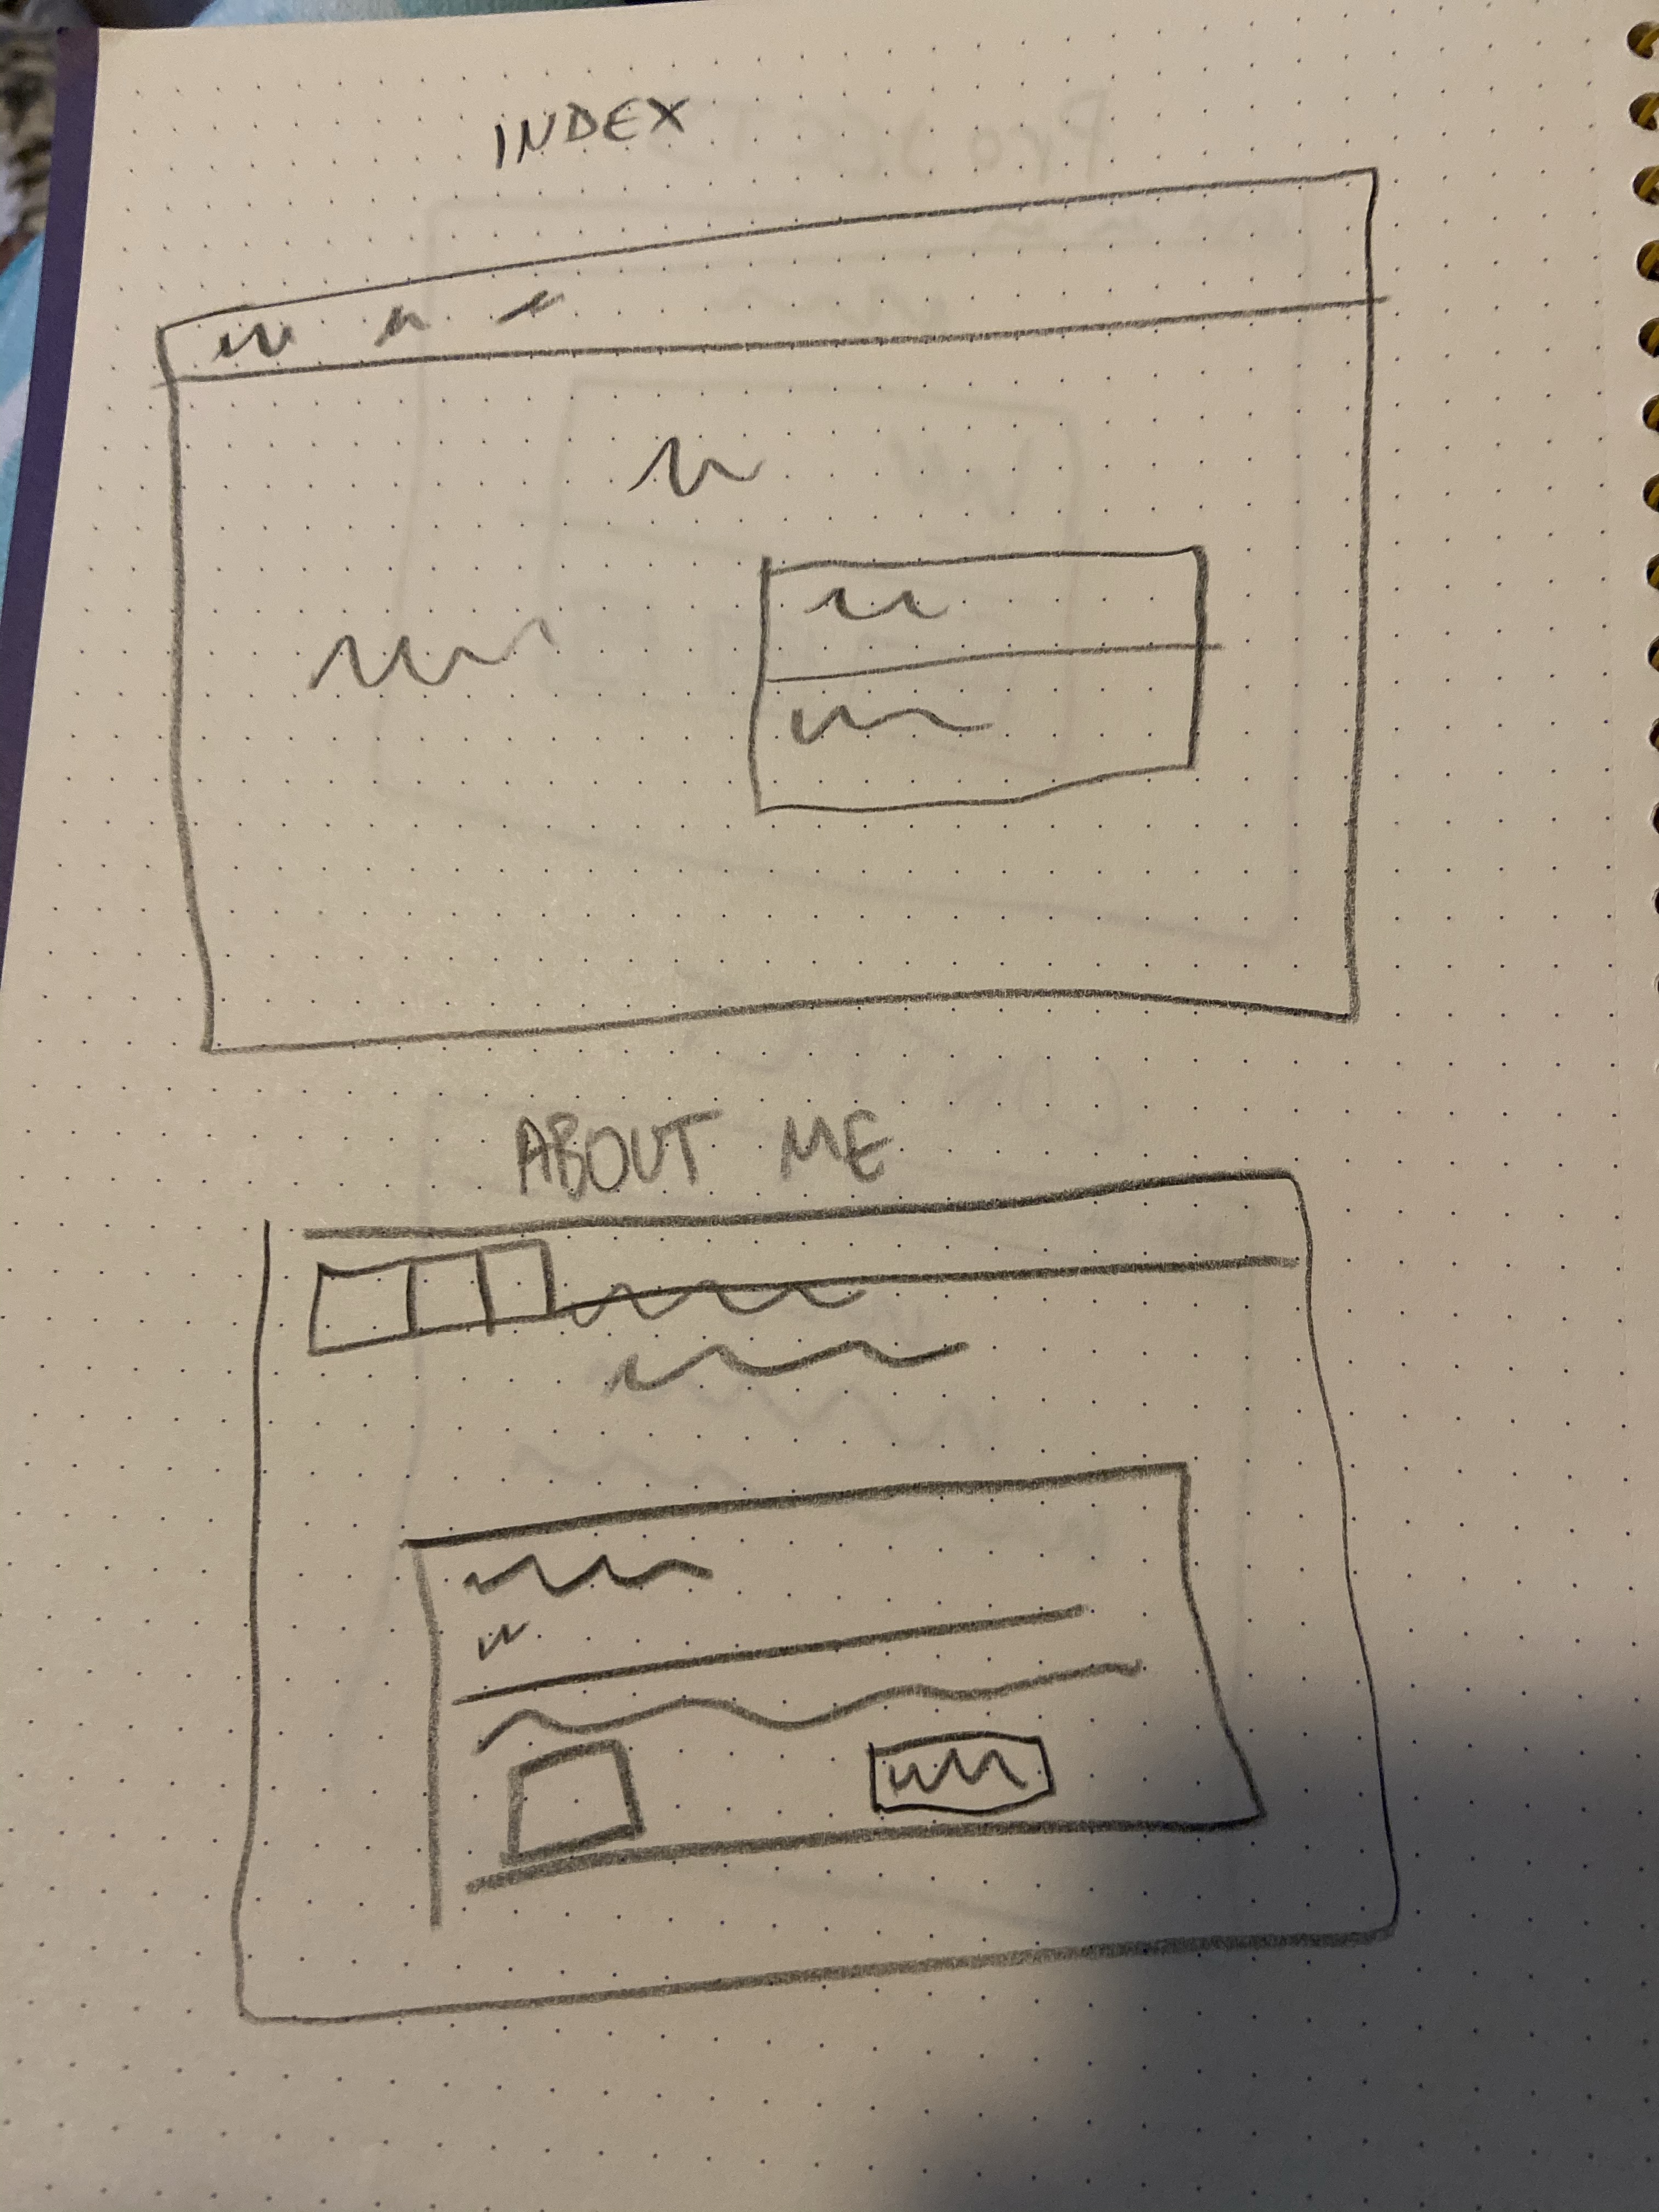 INDEX
ABOUT ME